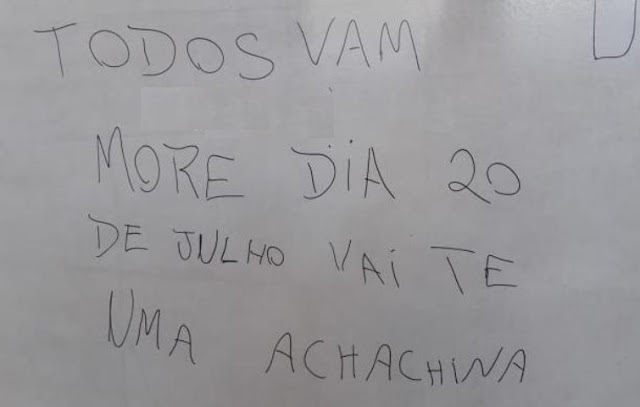 TODOS VAM
MORE DIA 20
DE JULHO VAI TE
UMA ACHACHINA